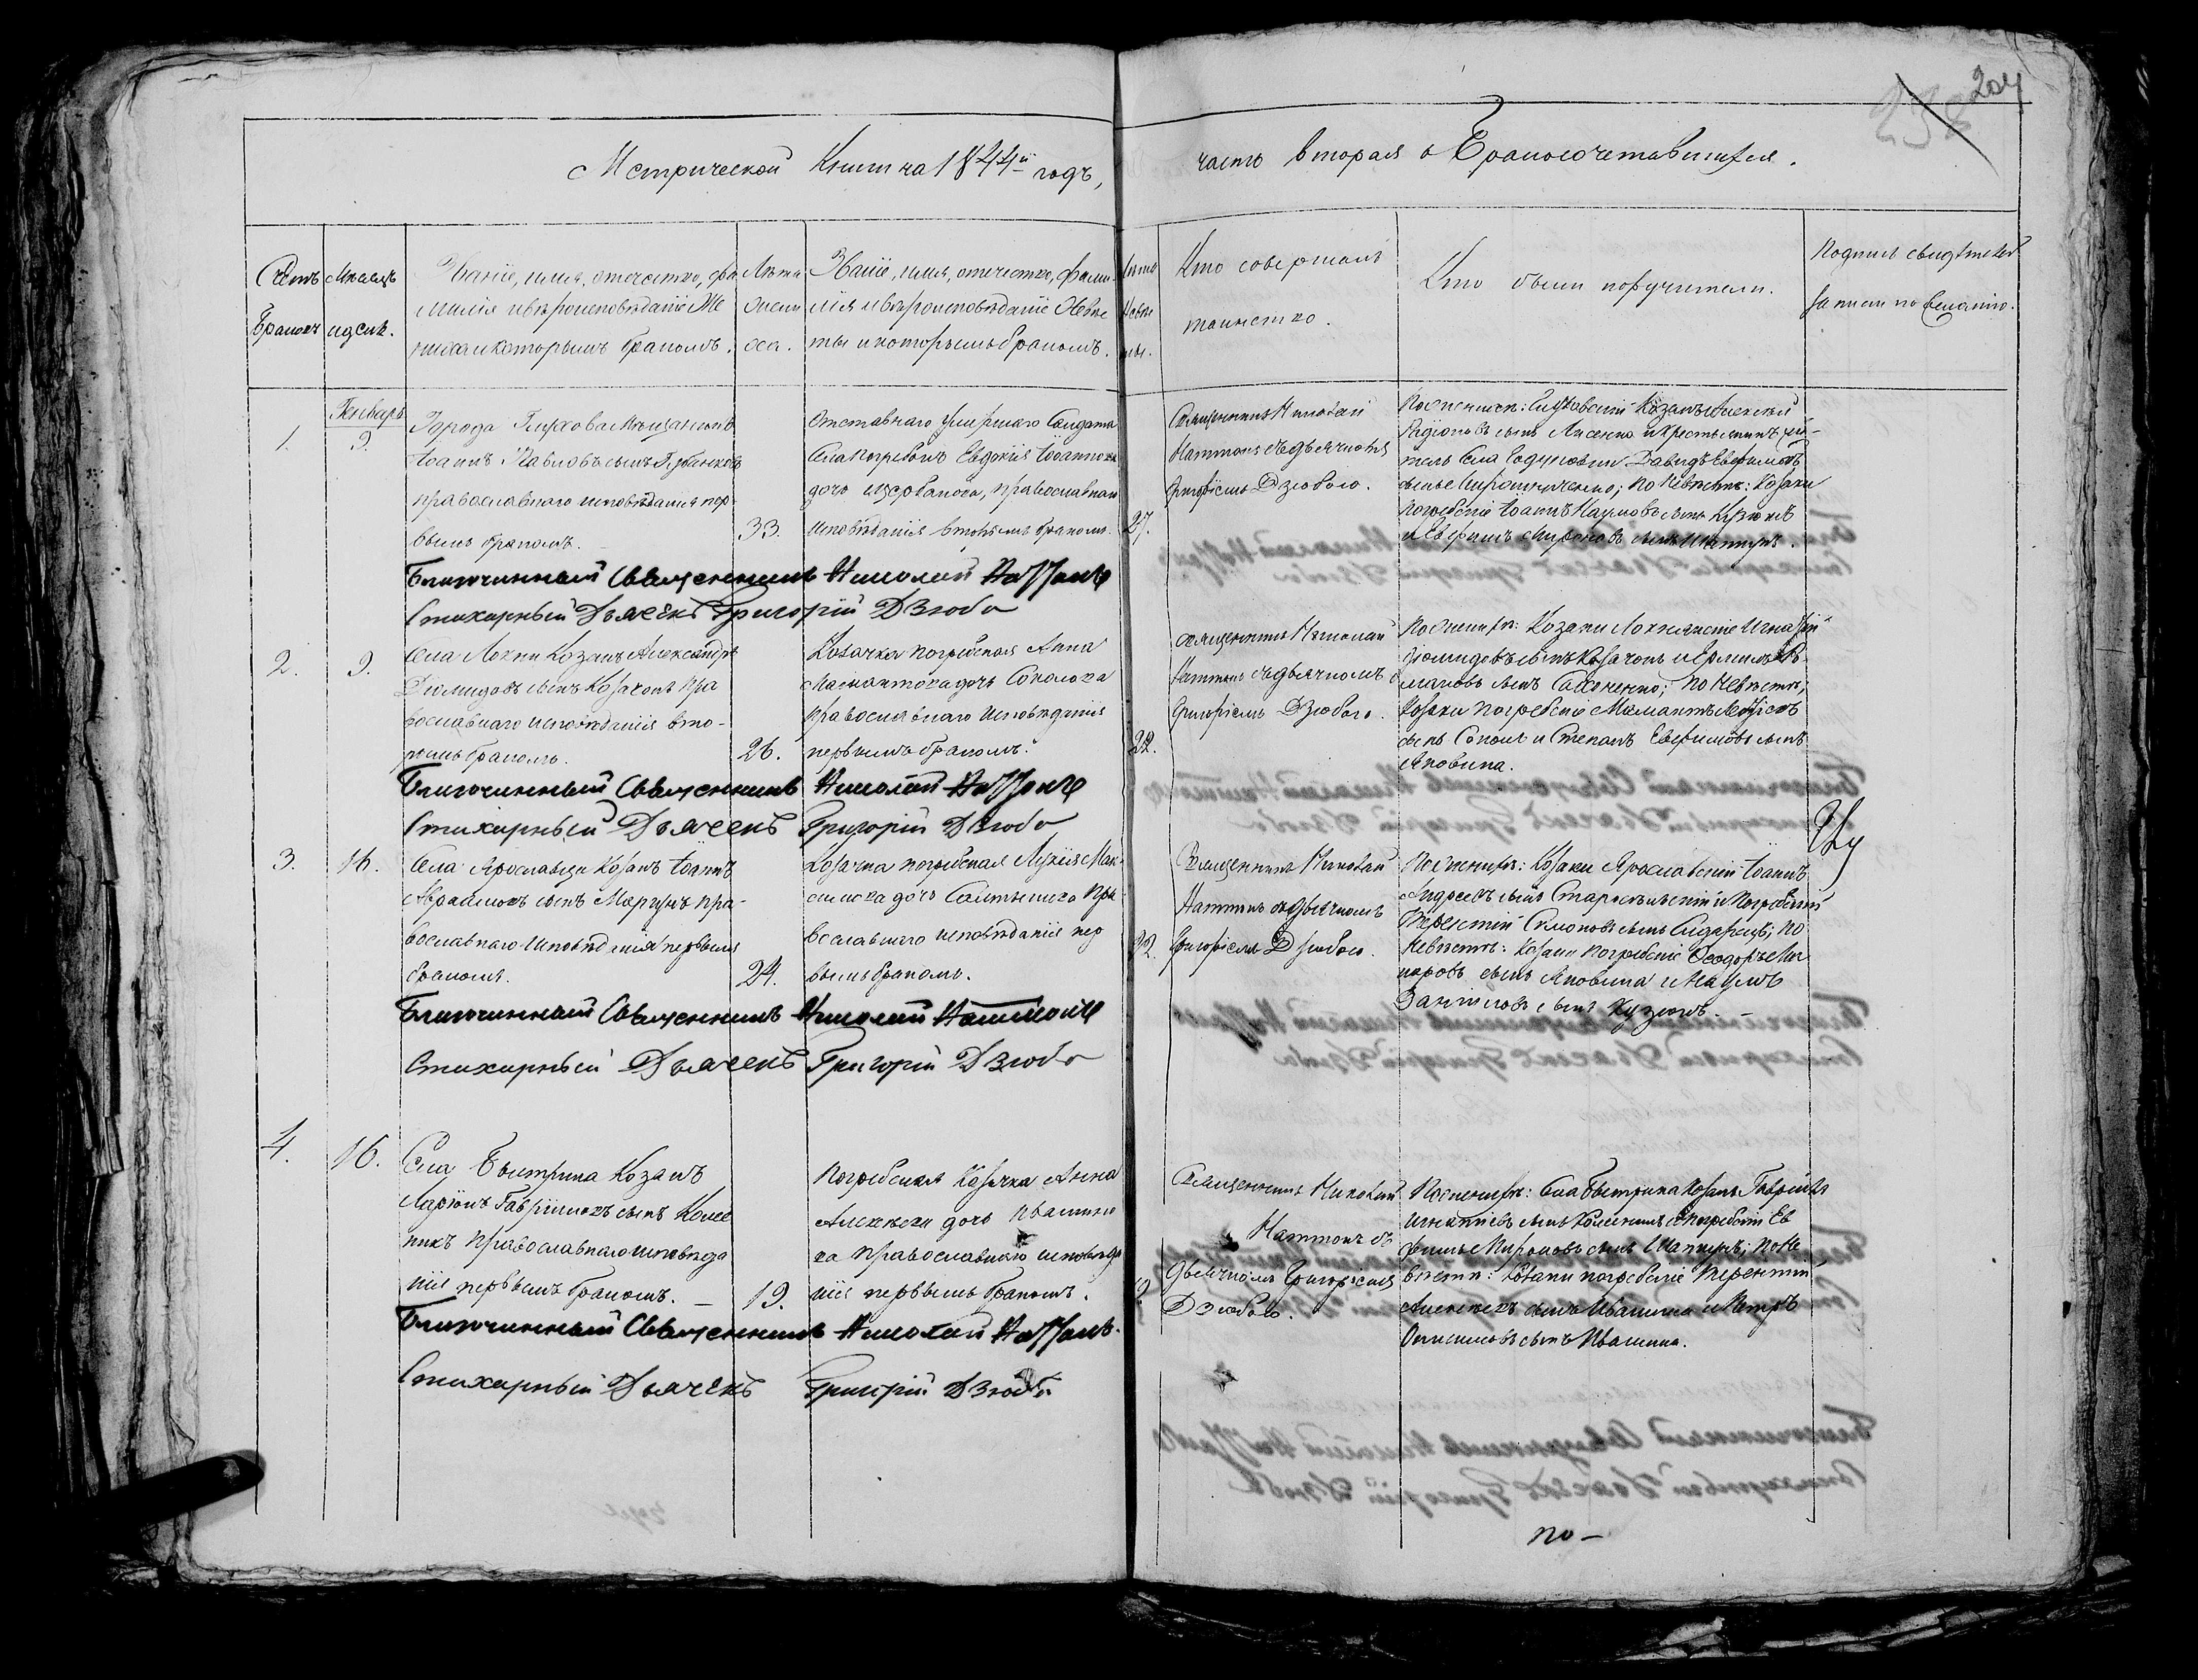 204
Метрической Книги на 1844й годъ,
часть вторая о Бракосочетавшихся.
Счетъ Браковъ
Мѣсяцъ и день.
Званіе, имя, отчество, фа
милія и вѣроисповѣданіе Же
ниха и которымъ бракомъ.
Лѣта
Жени
оха.
Званіе, имя, отчество, фами
лія и вѣроисповѣданіе Невѣс
ты и которымъ бракомъ.
Лѣта
Невѣс
ты.
Кто совершалъ
таинство.
Кто были поручители.
Подпись свидѣтелей
записи по желанію.
1.
Генварь
9.
Города Глухова Мѣщанинъ
Іоаннъ Павловъ сынъ
православнаго исповѣданія пер
вымъ бракомъ.
33.
Отставнаго умершаго Солдата
Села Погребокъ Евдокія Іоаннова
дочь Щербакова, православнаго
исповѣданія вторымъ бракомъ.
27.
Священникъ Николай
Наттокъ съ дьячкомъ
Григоріемъ Дзюбою.
По женихѣ: Глуховскій Козакъ Алексѣй
Родіоновъ сынъ Лисенко и крестьянинъ жи-
тель Села Годуновки Давидъ Евфимовъ
сынъ Мирошниченко; По Невѣстѣ: Козаки
Погребскіе Іоаннъ Наумовъ сынъ Кузюкъ
и Евфимъ Мироновъ сынъ Шапкуръ.
Благочинный Священникъ Николай Наттокъ
Стихарный Дьячекъ Григорій Дзюба
2.
9.
Села Локни Козакъ Александръ
Діомидовъ сынъ Козачокъ пра
вославнаго исповѣданія вто-
рымъ бракомъ.
26.
Козачка погребская Анна
Мамантова дочь Соколова
православнаго исповѣданія
первымъ бракомъ.
22.
Священникъ Николай
Наттокъ съ дьячкомъ
Григоріемъ Дзюбою.
По женихѣ: Козаки Локнянскіе Игнатій
Діомидовъ сынъ Козачокъ и Ермилъ Ро
мановъ сынъ Сахоненко; по Невѣстѣ;
Козаки погребскіе Мамантъ
сынъ Соколъ и Стефанъ Евфимовъ сынъ
Яковина.
Благочинный Священникъ Николай Наттокъ
Стихарный Дьячекъ Григорій Дзюба
3.
16.
Села Ярославца Козакъ Іоаннъ
Авраамовъ сынъ Моргунъ пра-
вославнаго исповѣданія первымъ
бракомъ.
24.
Козачка погребская Лукія Мак
симова дочь пра
вославнаго исповѣданія пер
вымъ бракомъ.
22.
Священникъ Николай
Наттокъ съ дьячкомъ
Григоріемъ Дзюбою.
По женихѣ: Козаки Ярославскій Іоаннъ
Андреевъ сынъ и Погребскій
Терентій Симоновъ сынъ Сидорецъ; по
Невѣстѣ: Козаки погребскіе Феодоръ Ма
каровъ сынъ Яковина и Наумъ
Даниловъ сынъ Кузюкъ.
Благочинный Священникъ Николай Наттокъ
Стихарный Дьячекъ Григорій Дзюба
4.
16.
Села Быстрика Козакъ
Ларіонъ Гавріиловъ сынъ Колес
никъ православнаго исповѣда
нія первымъ бракомъ.
19.
Погребская Козачка Анна
Алексѣева дочь Ивашино
ва православнаго исповѣда
нія первымъ бракомъ.
Священникъ Николай
Наттокъ съ
дьячкомъ Григоріемъ
Дзюбою.
По женихѣ: Села Быстрика Козакъ Гавріилъ
Игнатіевъ сынъ Колесникъ и погребскій Ев
фимъ Мироновъ сынъ Шапкуръ; по Не
вѣстѣ: Козаки погребскіе Терентій
Алексѣевъ сынъ Ивашина и Петръ
Онисимовъ сынъ Ивашина.
Благочинный Священникъ Николай Наттокъ.
Стихарный Дьячекъ Григорій Дзюба
по-